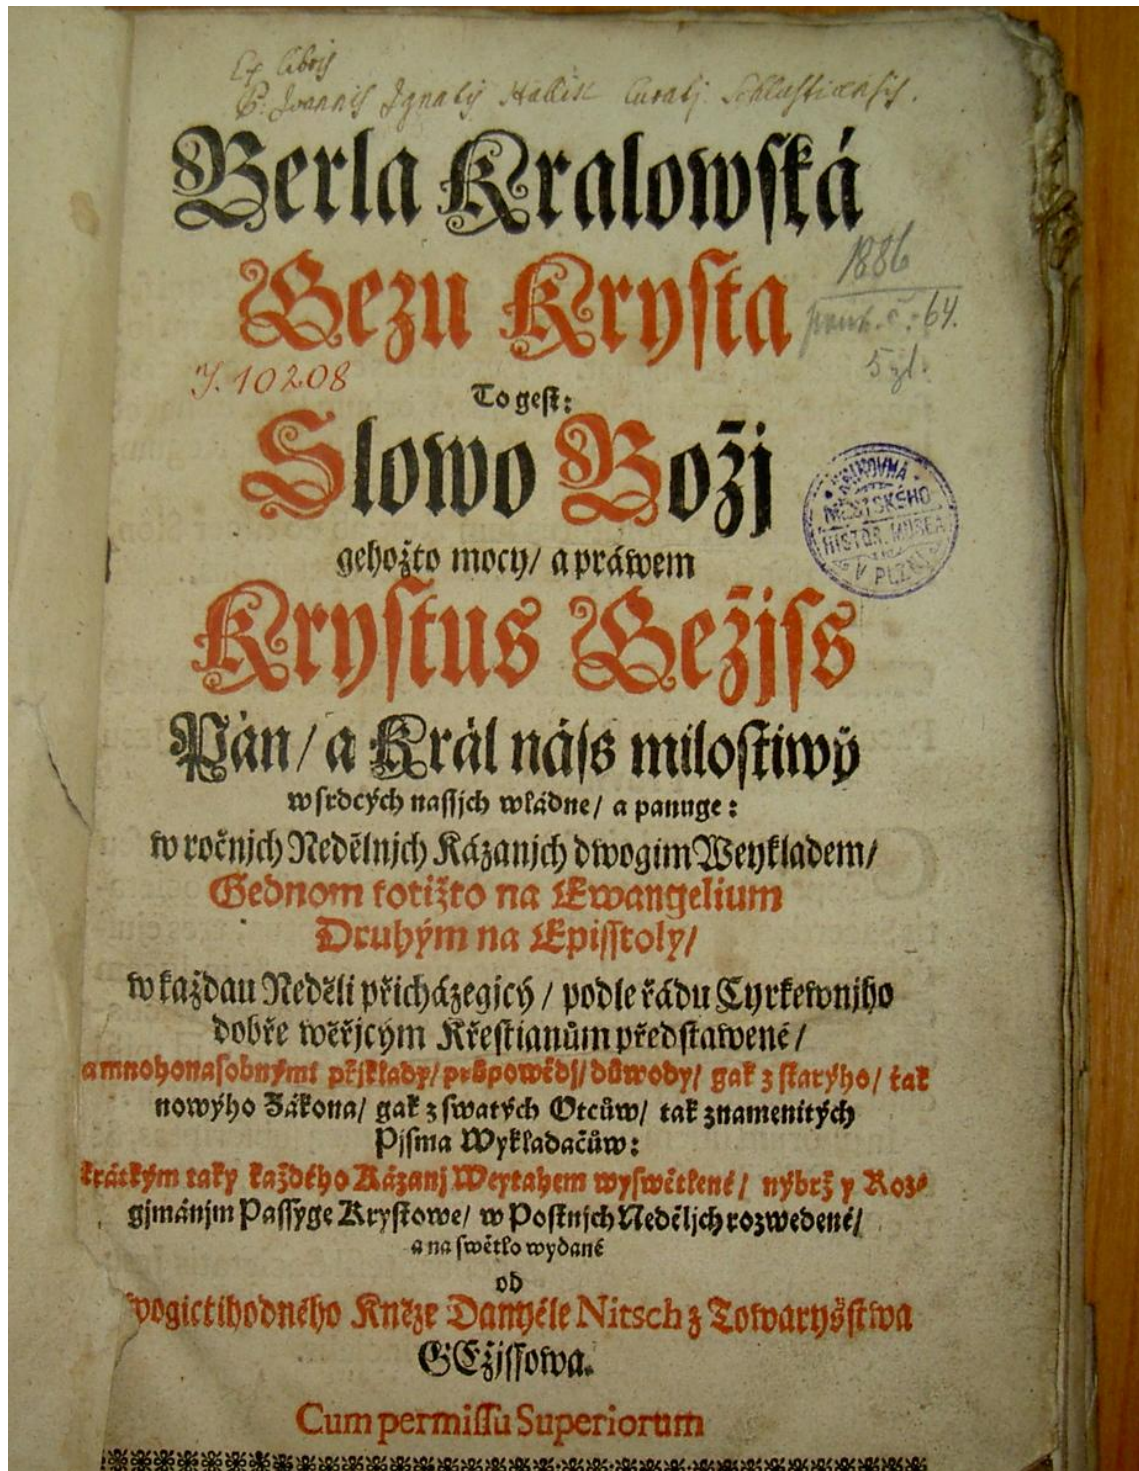 Ex libris
P. Joannis Ignatij Curatj
Berla Kralowſká
Gezu Kryſta
1886
64.
J. 10208
To geſt:
Slowo Božj
KNIHOVNA
MĚSTSKÉHO
HISTOR. MUSEA
V PLZNI
gehožto mocy/ a práwem
Kryſtus Gežjſs
Pán/ a Král náſs miloſtiwý
w ſrdcých naſſjch wládne/ a panuge:
wročnjch Nedělnjch Kázanjch dwogim Weykladem/
Gednom totižto na Ewangelium
Druhým na Epiſſtoly/
w každau Neděli přicházegjcý/ podle řádu Cyrkewnjho
dobře wěřjcým Křeſtianům předſtawené/
a mnohonaſobnými přjklady/ průpowědj/ důwody/ gak z ſtarýho/ tak
nowýho Zákona/ gak z ſwatých Otcůw/ tak znamenitých
Pjſma Wykladačůw:
krátkým taky každého Kázanj Weytahem wyſwětlené/ nýbrž y Roz⸗
gjmánjm Paſſyge Kryſtowe/ w Poſtnjch Neděljch rozwedené/
a na ſwětlo wydané
od
wogictihodného Kněze Danyéle Nitsch z Towaryšſtwa
GEžjſſowa.
Cum permiſſu Superiorum